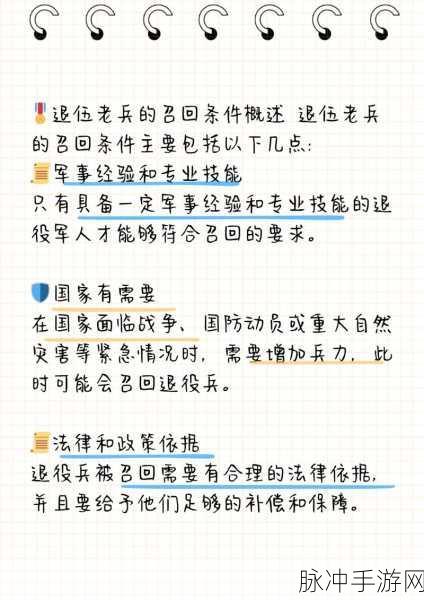 退伍老兵的召回条件概述 退伍老兵
的召回条件主要包括以下几点:
军事经验和专业技能
只有具备一定军事经验和专业技能的退
役军人才能够符合召回的要求。
国家有需要
在国家面临战争、国防动员或重大自然
灾害等紧急情况时，需要增加兵力，此
时可能会召回退役兵。
法律和政策依据
退役兵被召回需要有合理的法律依据，
并且要给予他们足够的补偿和保障。
脉冲手游网